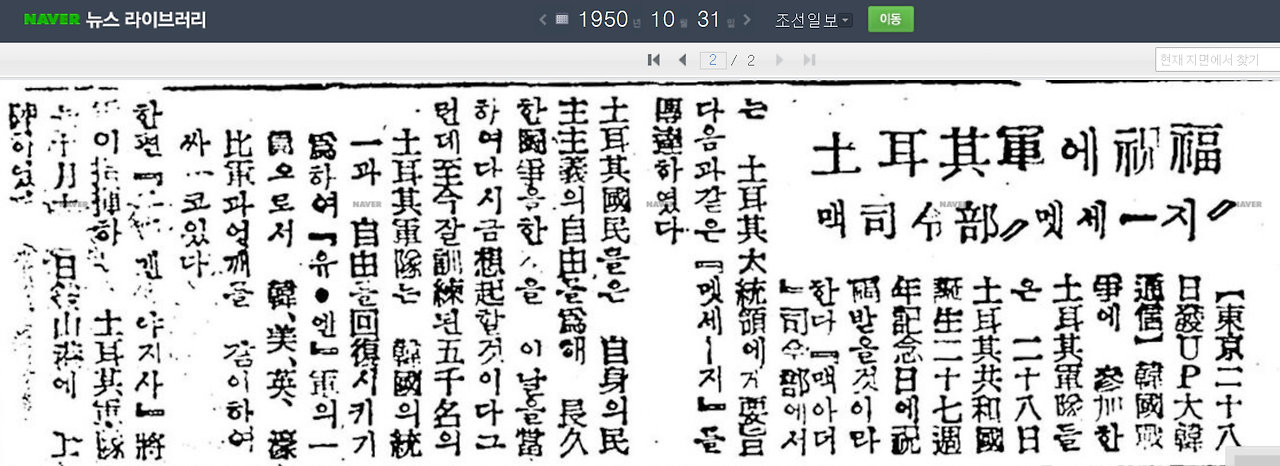 NAVER 뉴스 라이브러리
1950년 10월 31일 조선일보 이동
2 / 2
현재 지면에서 찾기
土耳其軍에 祝福
맥司令部〃멧세一지〃
【東京二十八
日發UP大韓
通信】韓國戰
爭에 參加한
土耳其軍隊들
은 二十八日
土耳其共和國
誕生二十七週
年記念日에祝
福받을것이라
한다『맥아더
』司令部에서
는 土耳其大統領에 要旨
다음과같은『멧세ㅣ지』를
傳達하였다
土耳其國民들은 自身의民
主主義의自由를爲해 長久
한鬪爭을한 을 이날을當
하여다시금想起할것이다그
런데至今잘訓練된五千名의
土耳其軍隊는 韓國의統
一과 自由를回復시키기
爲하여『유●엔』軍의一
員으로서 韓、美、英、濠
比軍과어깨를 같이하여
싸 코있다
한편 將
이 土耳其軍隊
日 山 에 上
하였다
NAVER
NAVER
NAVER
NAVER
NAVER